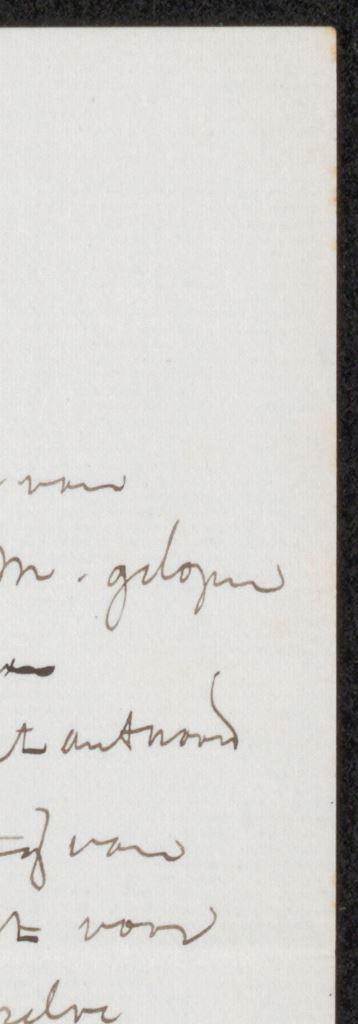 van
M. gelopen
t antwoord
van
t voor
zelve